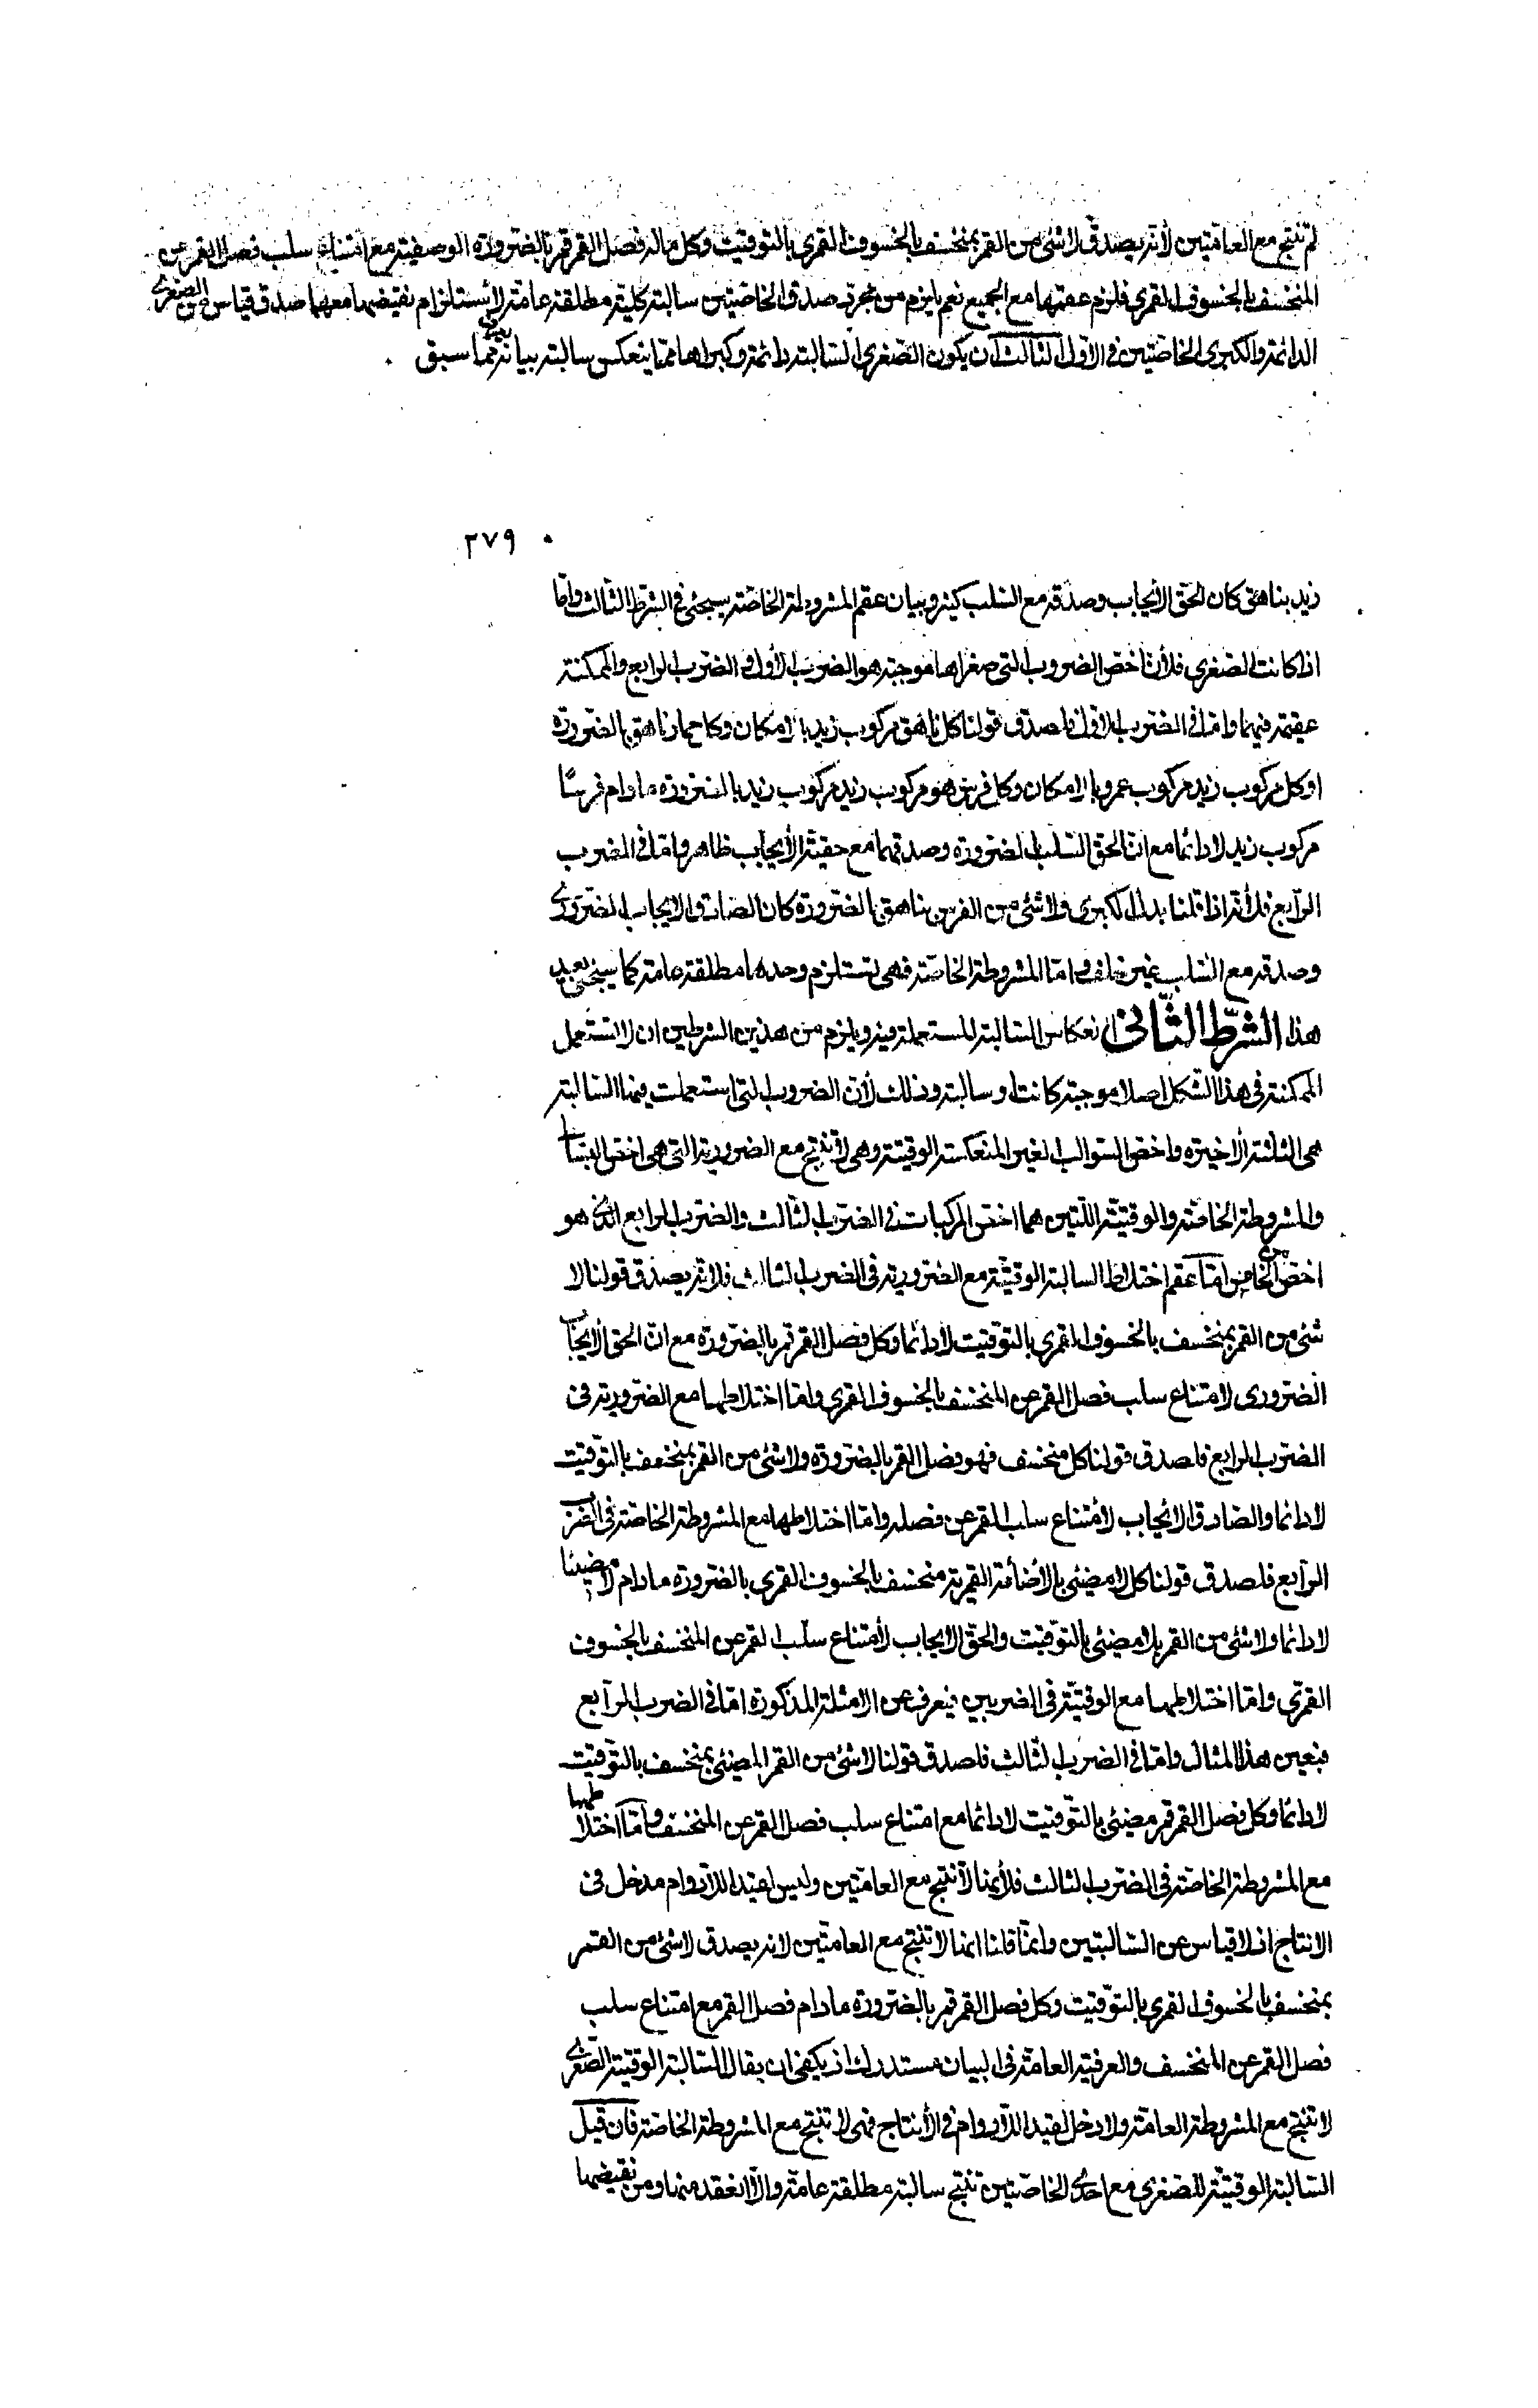 لم تنتج مع العامتين لأنه يصدق لا شئ من القمر بمنخسف بالخسوف القمرى بالتوقيت وكل ماله فصل القمر قمر بالضرورة الوصفية مع امتناع سلب فصل القمر عن
المنخسف بالخسوف القمرى فلزم عقمها مع الجميع نعم يلزم من مجرد صدق الخاصتين سالبة كلية مطلقة عامة لاستلزام نقيضها معهما صدق قياس من الصغرى
الدائمة والكبرى الخاصتين فى الاول الثالث ان يكون الصغرى السالبة دائمة وكبراها مما ينعكس سالبة بيانه مما سبق
٢٧٩
زيد بناهق كان الحق الأيجاب وصدقه مع السلب كثير وبيان عقم المشروطة الخاصة سيجئ فى الشرط الثالث واما
اذا كانت الصغرى فلأن اخص الضروب التى صغراها موجبة هو الضرب الأول و الضرب الرابع والممكنة
عقيمة فيهما واما فى الضرب الاول فلصدق قولنا كل ناهق مركوب زيد بالامكان وكل حمار ناهق بالضرورة
او كل مركوب زيد مركوب عمرو بالامكان وكل فرس هو مركوب زيد مركوب زيد بالضرورة مادام فرسًا
مركوب زيد لا دائما مع ان الحق السلب بالضرورة وصدقهما مع حقية الأيجاب ظاهر واما فى الضرب
الرابع فلأنه اذا قلنا بدل الكبرى ولا شئ من الفرس بناهق بالضرورة كان الصادق الايجاب الضرورى
وصدقه مع السلب غير خلف واما المشروطة الخاصة فهى تستلزم وحدها مطلقة عامة كما سيجئ بعيد
هذا الشرط الثانى انعكاس السالبة المستعملة فيه ويلزم من هذين الشرطين ان لا تستعمل
الممكنة فى هذا الشكل اصلا موجبة كانت او سالبة وذلك لأن الضروب التى استعملت فيها السالبة
هى الثلثة الأخيرة واخص السوالب الغير المنعكسة الوقتية وهى لا تنتج مع الضرورية التى هى اخص البسائط
والمشروطة الخاصة والوقتية اللتين هما اخص المركبات فى الضرب الثالث والضرب الرابع الذى هو
اخص من الخامس اما عقم اختلاط السالبة الوقتية مع الضرورية فى الضرب الثالث فلانه يصدق قولنا لا
شئ من القمر بمنخسف بالخسوف القمرى بالتوقيت لا دائما وكل فصل القمر قمر بالضرورة مع ان الحق الأيجاب
الضرورى لامتناع سلب فصل القمر عن المنخسف بالخسوف القمرى واما اختلاطها مع الضرورية فى
الضرب الرابع فلصدق قولنا كل منخسف فهو فصل القمر بالضرورة ولا شئ من القمر بمنخسف بالتوقيت
لا دائما والصادق الايجاب لأمتناع سلب القمر عن فصله واما اختلاطها مع المشروطة الخاصة فى الضرب
الرابع فلصدق قولنا كل لا مضيئ بالأضائة القمرية منخسف بالخسوف القمرى بالضرورة مادام لا مضيئا
لا دائما ولا شئ من القمر بلا مضيئ بالتوقيت والحق الايجاب لأمتناع سلب القمر عن المنخسف بالخسوف
القمرى واما اختلاطها مع الوقتية فى الضربين فيعرف عن الامثلة المذكورة اما فى الضرب الرابع
فبعين هذا المثال واما فى الضرب الثالث فلصدق قولنا لا شئ من القمر المضيئ بمنخسف بالتوقيت
لا دائما وكل فصل القمر قمر مضيئ بالتوقيت لا دائما مع امتناع سلب فصل القمر عن المنخسف واما اختلاطها
مع المشروطة الخاصة فى الضرب الثالث فلأنها لا تنتج مع العامتين وليس لقيد اللادوام مدخل فى
الانتاج اذ لا قياس عن السالبتين وانما قلنا انها لا تنتج مع العامتين لانه يصدق لا شئ من القمر
بمنخسف بالخسوف القمرى بالتوقيت وكل فصل القمر قمر بالضرورة مادام فصل القمر مع امتناع سلب
فصل القمر عن المنخسف والعرفية العامة فى البيان مستدرك اذ يكفى ان يقال السالبة الوقتية الصغرى
لا تنتج مع المشروطة العامة ولا دخل لقيد اللادوام فى الأنتاج فهى لا تنتج مع المشروطة الخاصة فان قيل
السالبة الوقتية الصغرى مع احدى الخاصتين تنتج سالبة مطلقة عامة والا انعقد منها ومن نقيضها